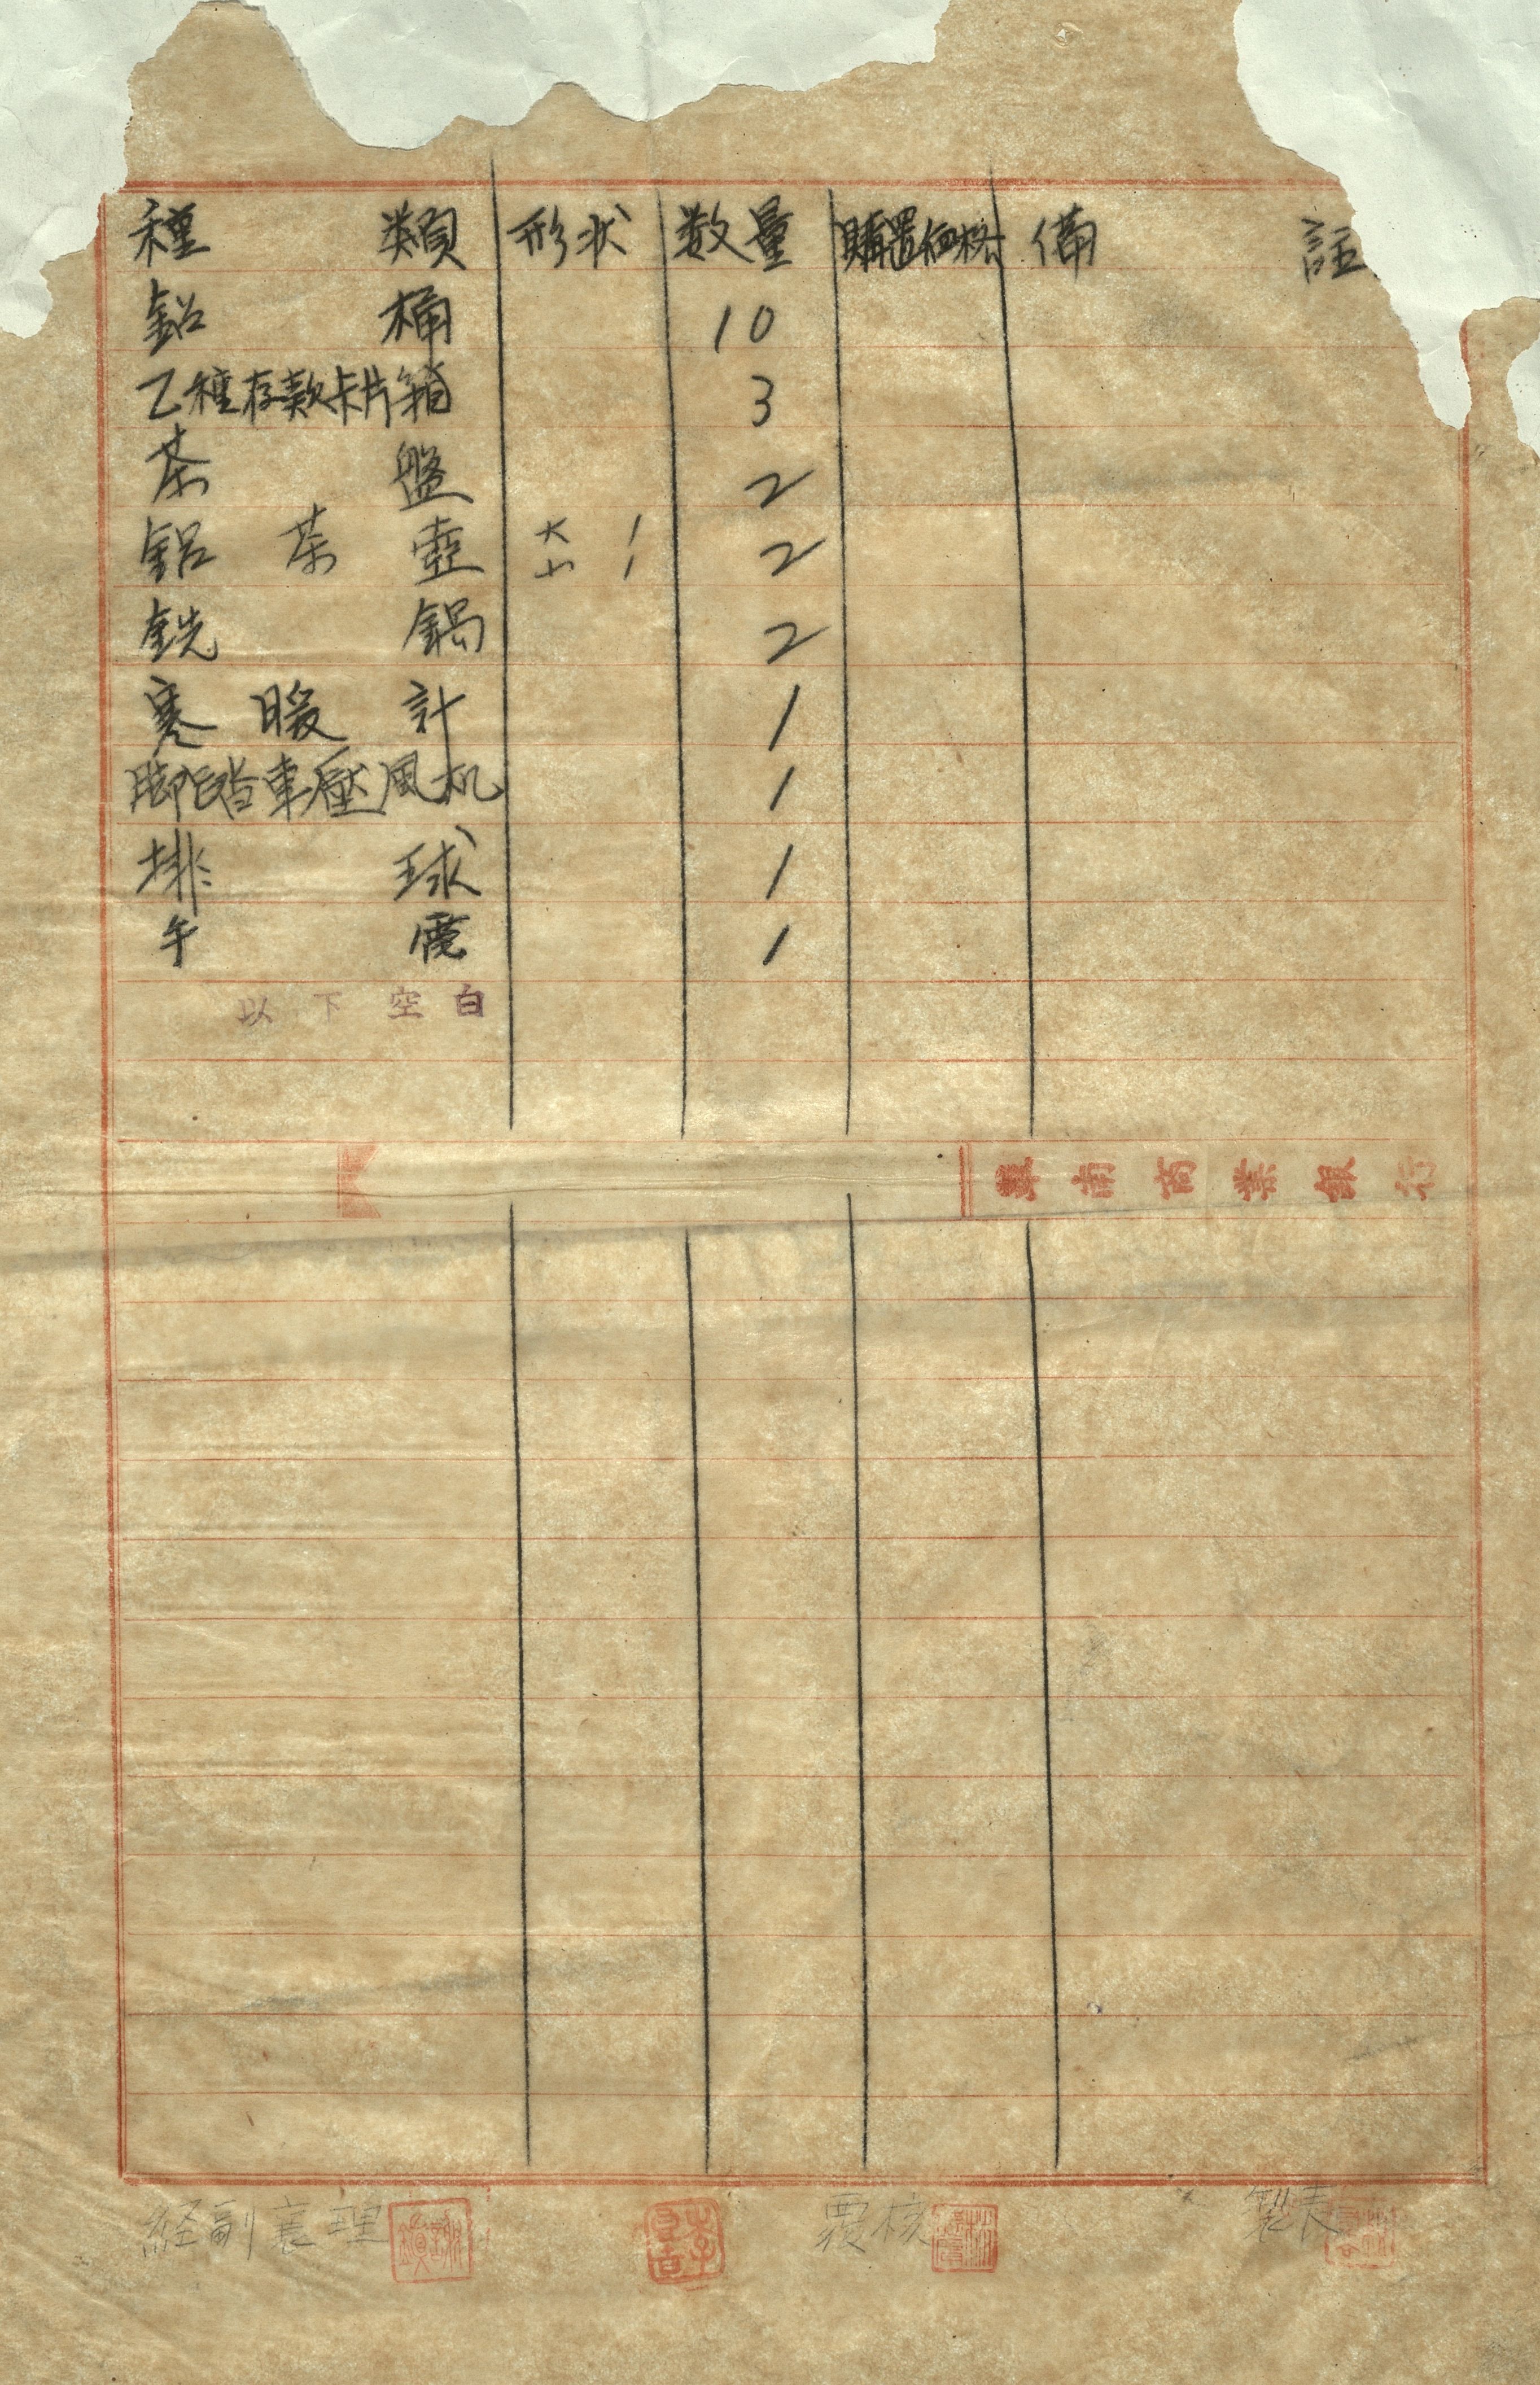 種類 形状 数量 購置価格 備註
鉛桶 10
乙種存款卡片箱 3
茶盤 2
鋁茶壺 大 1 小 1 2
銑鍋 2
寒暖計 1
脚踏車壓風机 1
排球 1
午 1
以下空白
華南商業銀行
経副襄理 覆核 製表